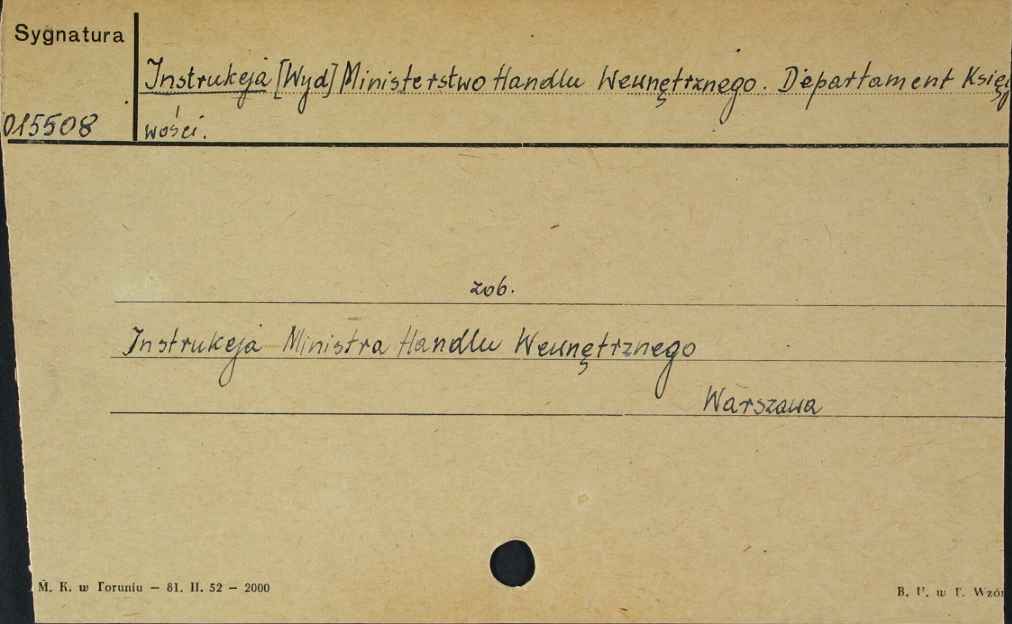 Sygnatura
Instrukcja [Wyd] Ministerstwo Handlu Wewnętrznego. Departament Księg
015508
wości.
zob.
Instrukcja Ministra Handlu Wewnętrznego
Warszawa
M. K. w Toruniu — 81. II. 52 — 2000
B. U. w T. Wzór